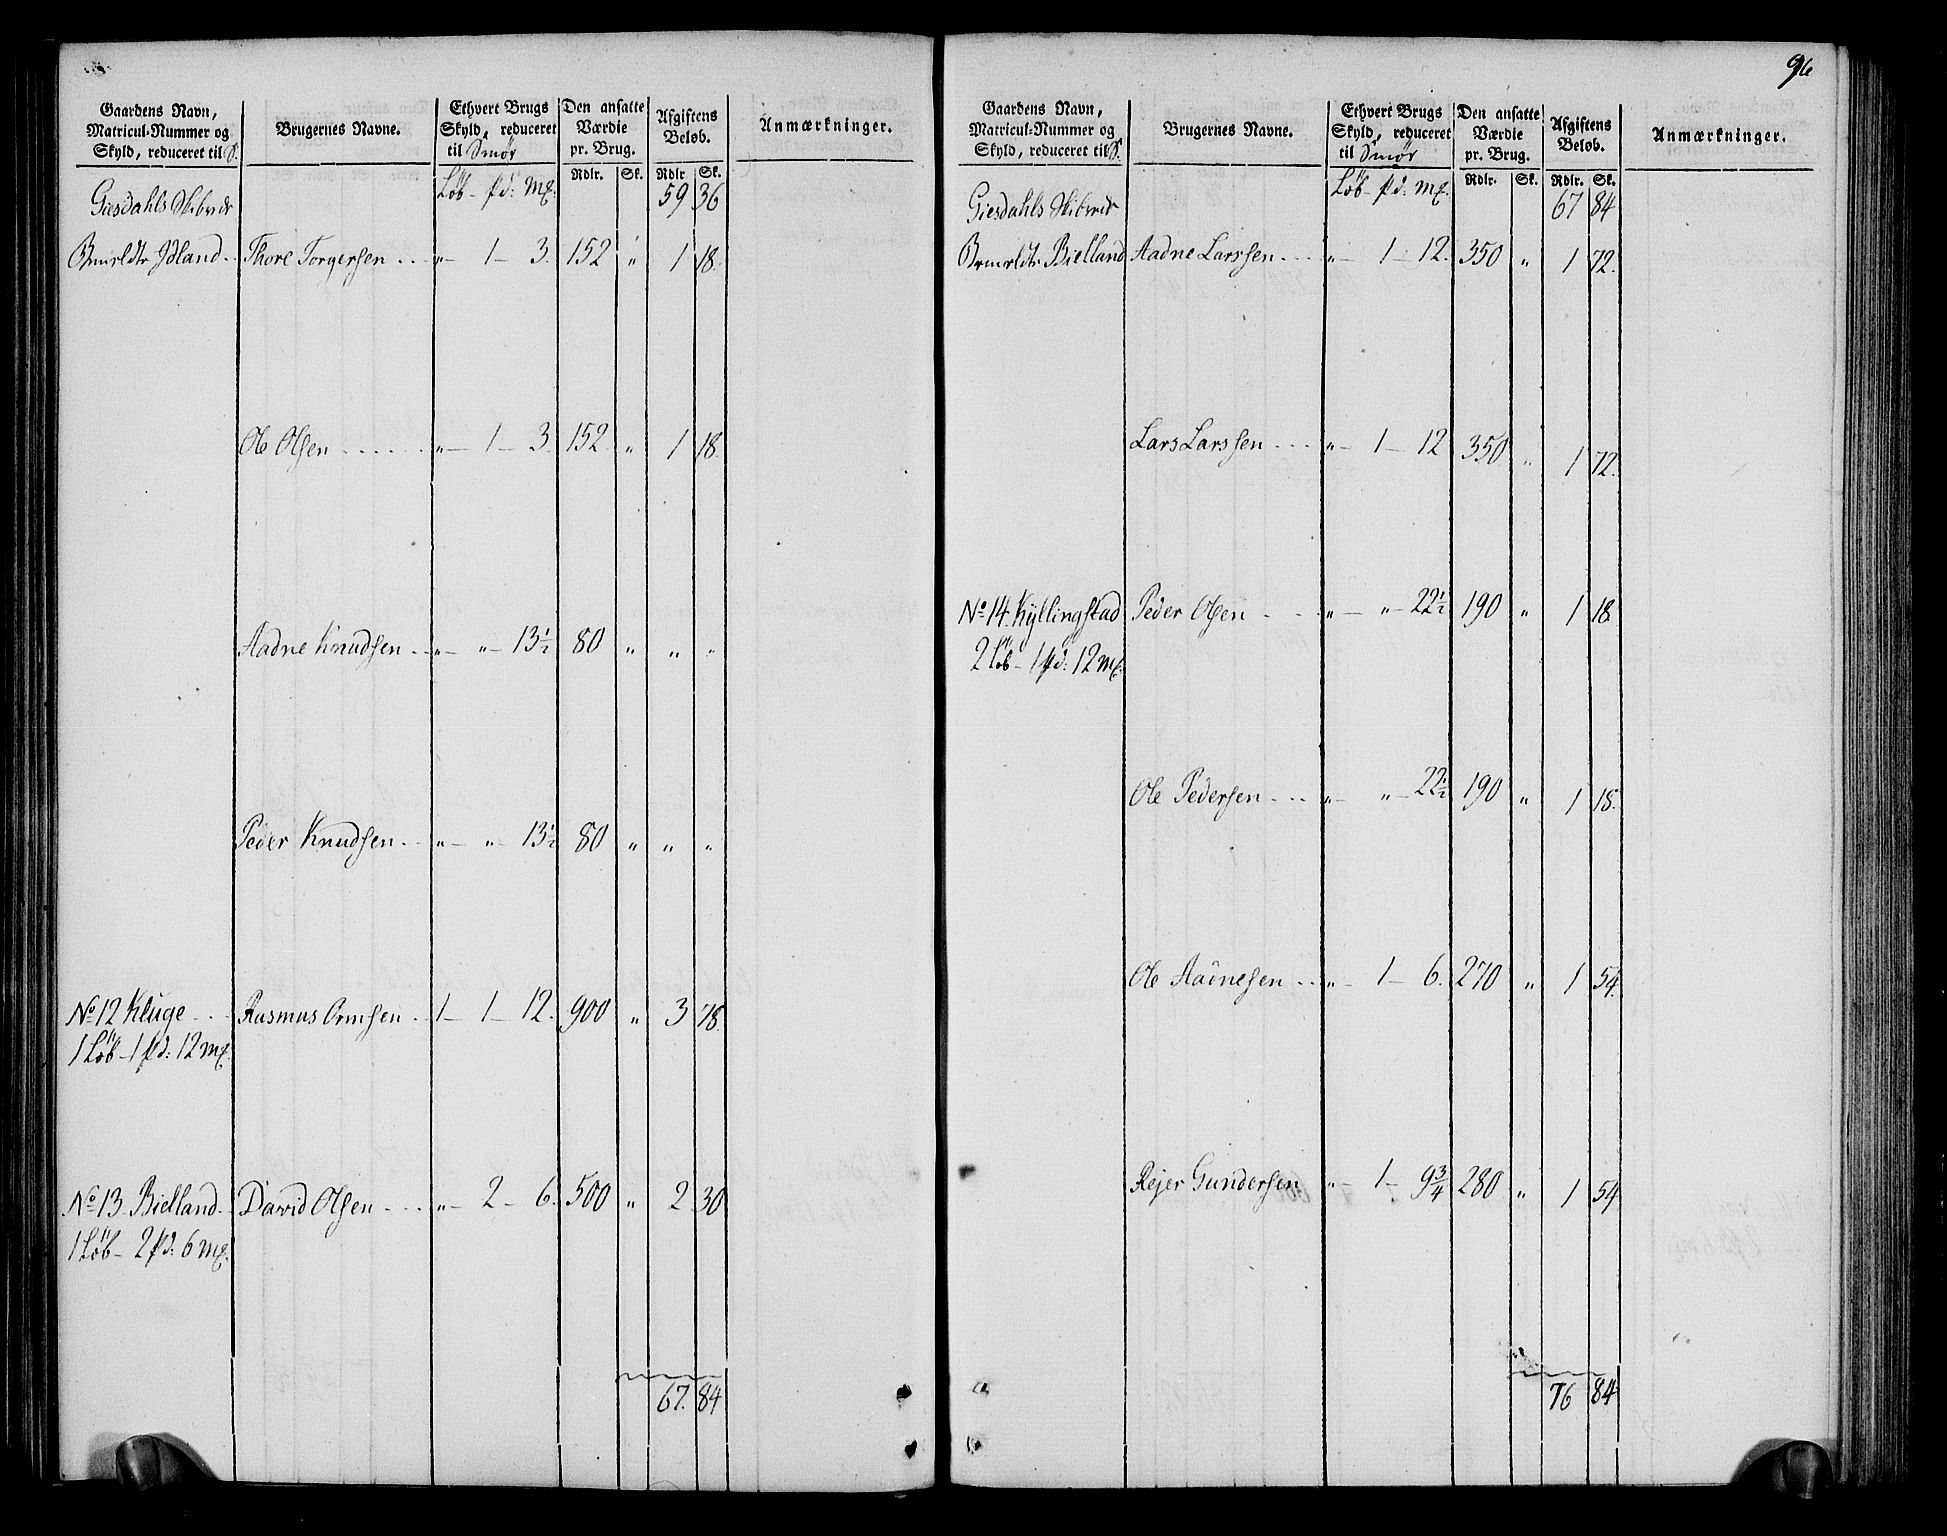 Gaardens Navn, Matricul-Nummer og Skyld, reduceret til S. | Brugernes Navne. | Ethvert Brugs Skyld, reduceret til Smør | Den ansatte Værdie pr. Brug. | Afgiftens Beløb. | Anmærkninger.
Rdlr. Sk. Rdlr Sk.
Giesdahls Skibrede Löb - pd: mg. 59 36
Idland Thore Torgersen „ 1 3. 152 „ 1 18.
Ole Olsen „ 1 3. 152 „ 1 18.
Aadne Knudsen „ „ 13½ 80 „ „ „
Peder Knudsen „ „ 13½ 80 „ „ „
No 12 Kluge Rasmus Ormsen 1 1 12. 900 „ 3 78.
1 Löb - 1 pd: 12 mg.
No 13 Bielland David Olsen „ 2 6. 500 „ 2 30
1 Löb - 2 pd: 6 mg.
67. 84
96
Gaardens Navn, Matricul-Nummer og Skyld, reduceret til S. | Brugernes Navne. | Ethvert Brugs Skyld, reduceret til Smør | Den ansatte Værdie pr. Brug. | Afgiftens Beløb. | Anmærkninger.
Rdlr. Sk. Rdlr. Sk.
Giesdahls Skibrede Löb - pd: mg. 67 84
Bielland Aadne Larssen „ 1 12. 350 „ 1 72.
Lars Larssen „ 1 12 350 „ 1 72.
No 14 Kyllingstad Peder Olsen „ „ 22½ 190 „ 1 18
2 Löb - 1 pd: 12 mg.
Ole Pedersen „ „ 22½ 190 „ 1 18.
Ole Aadnesen „ 1 6. 270 „ 1 54.
Rejer Gundersen „ 1 9¾ 280 „ 1 54
76 84